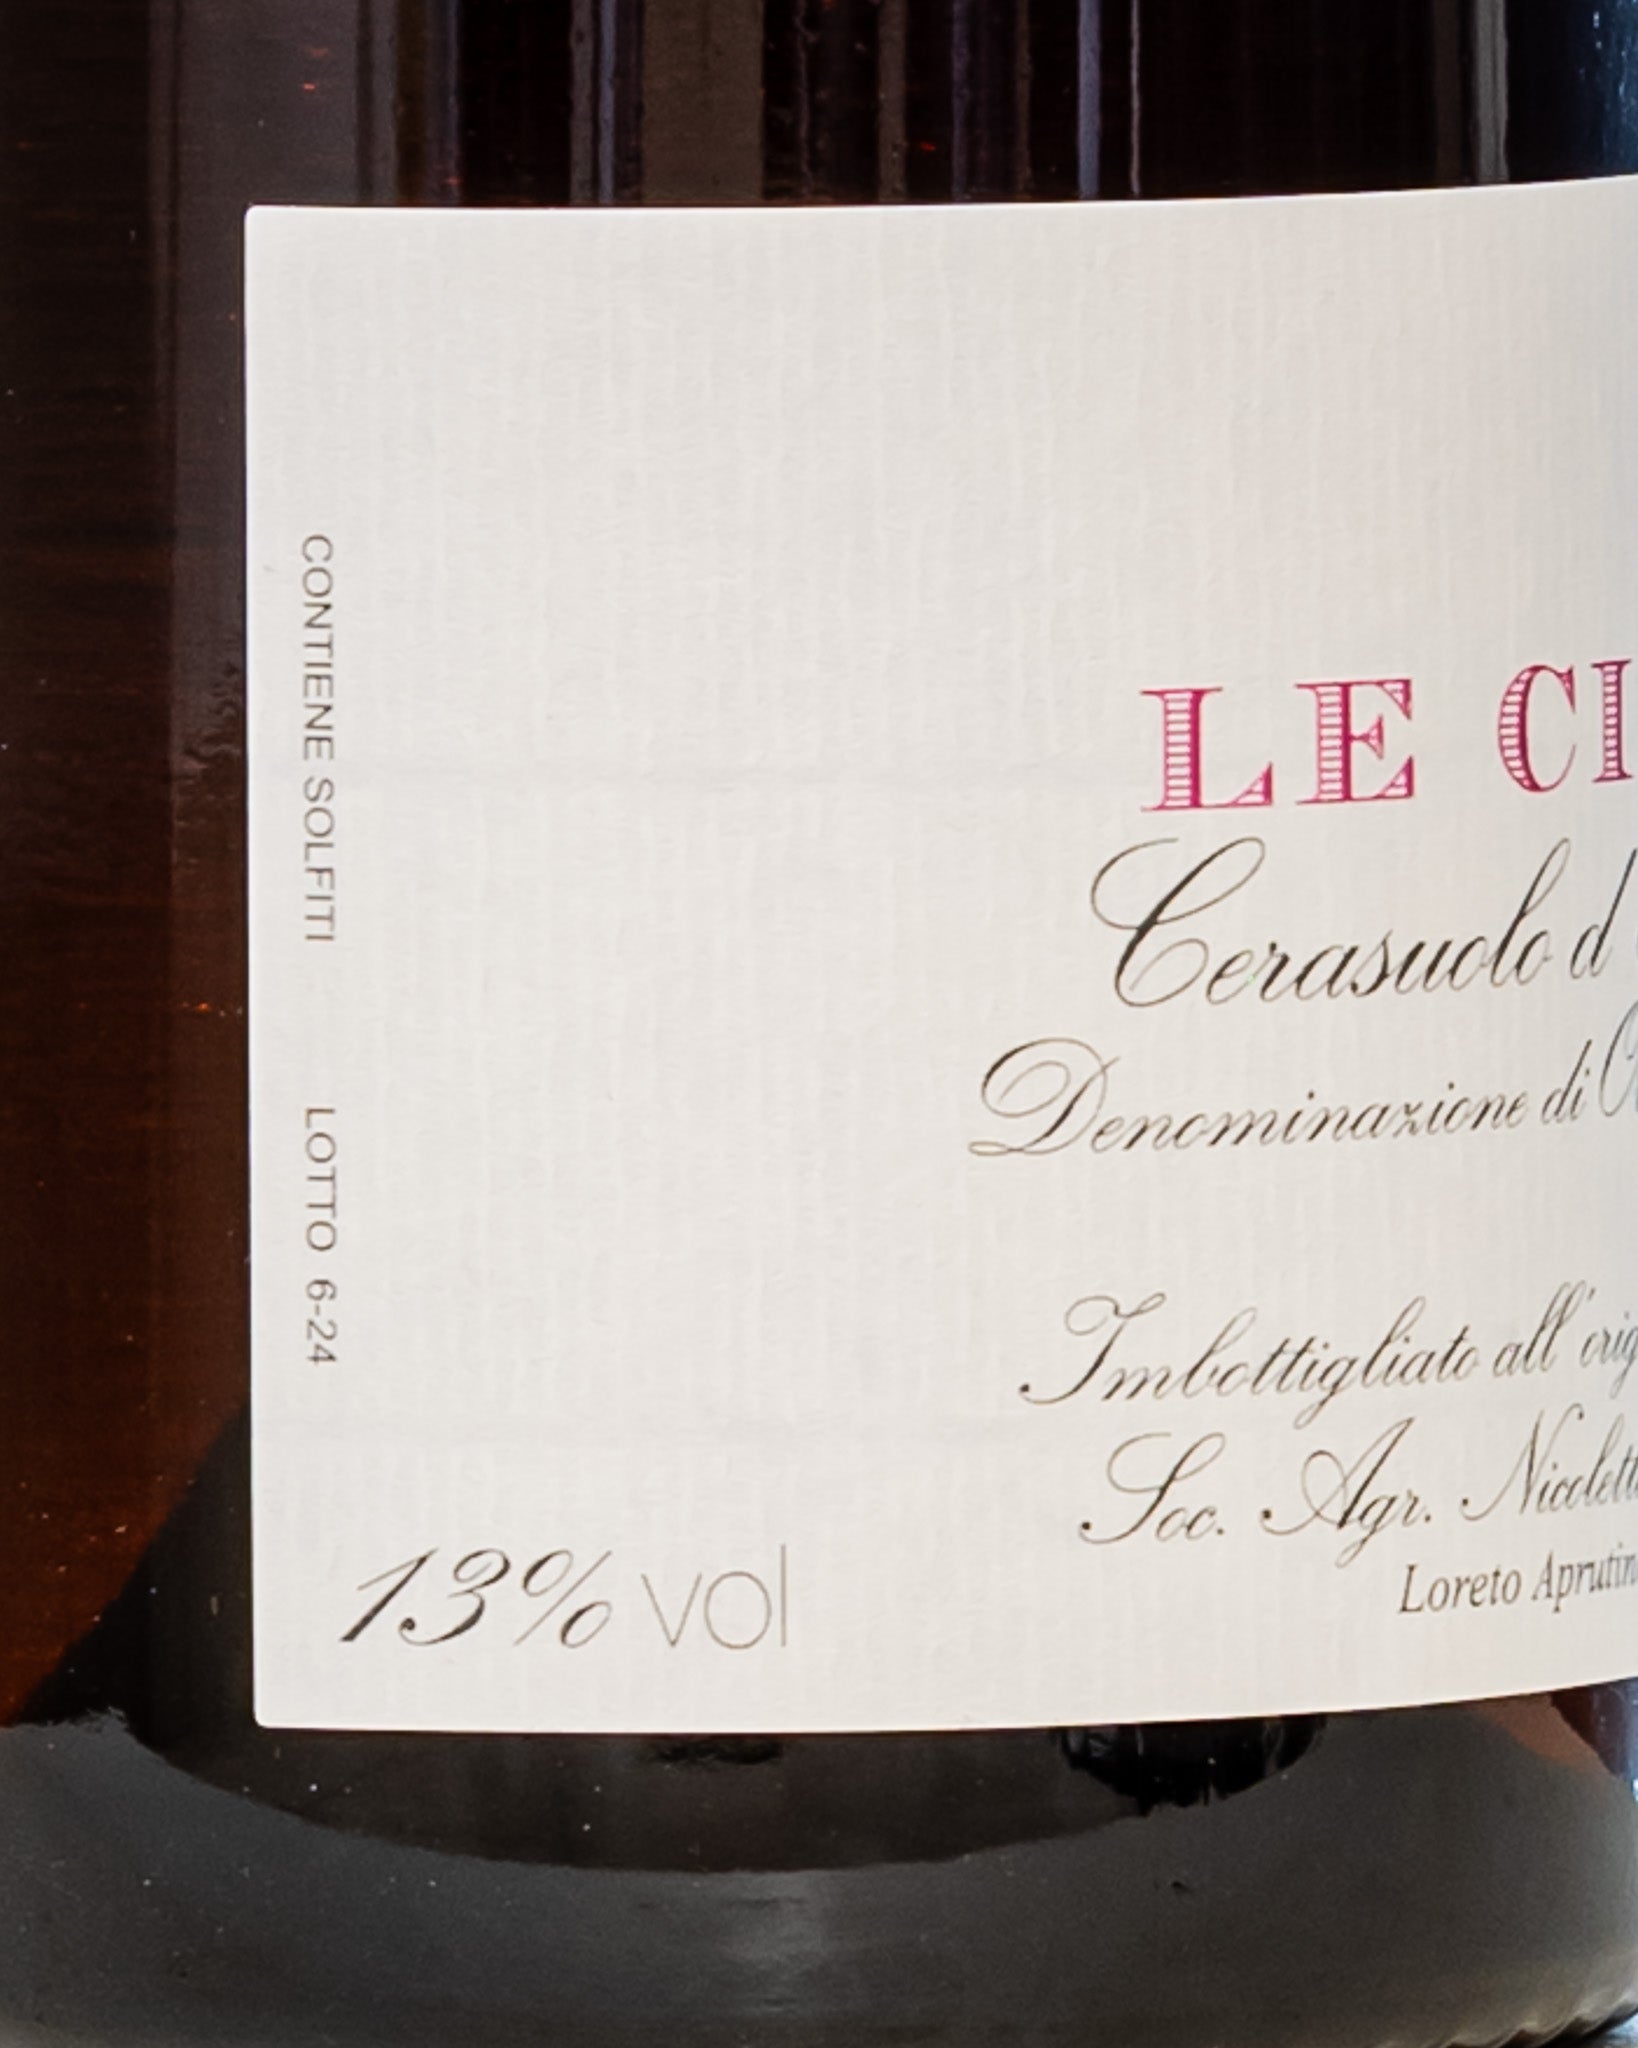 CONTIENE SOLFITI
LOTTO 6-24
LE CI
Cerasuolo d'
Denominazione di
Imbottigliato all'orig
Soc. Agr. Nicolett
Loreto Aprutin
13% vol